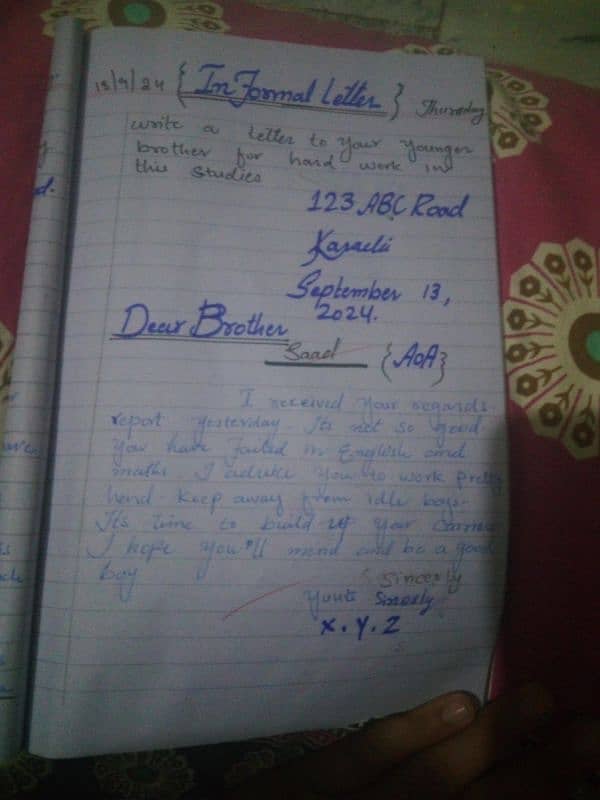 13/9/24 {InFormal Letter} Thursday
write a letter to your younger
brother for hard work in
this Studies
123 ABC Road
Karachi
September 13,
2024.
Dear Brother
Saad {AOA}
I received your regards
report yesterday. Its not so good
You have failed in English and
maths I advise you to work pretty
hard keep away from idle boys.
It's time to build up your
I hope you'll mind and be a good
boy
Sincerly
Yours Sincerly
X.Y.Z